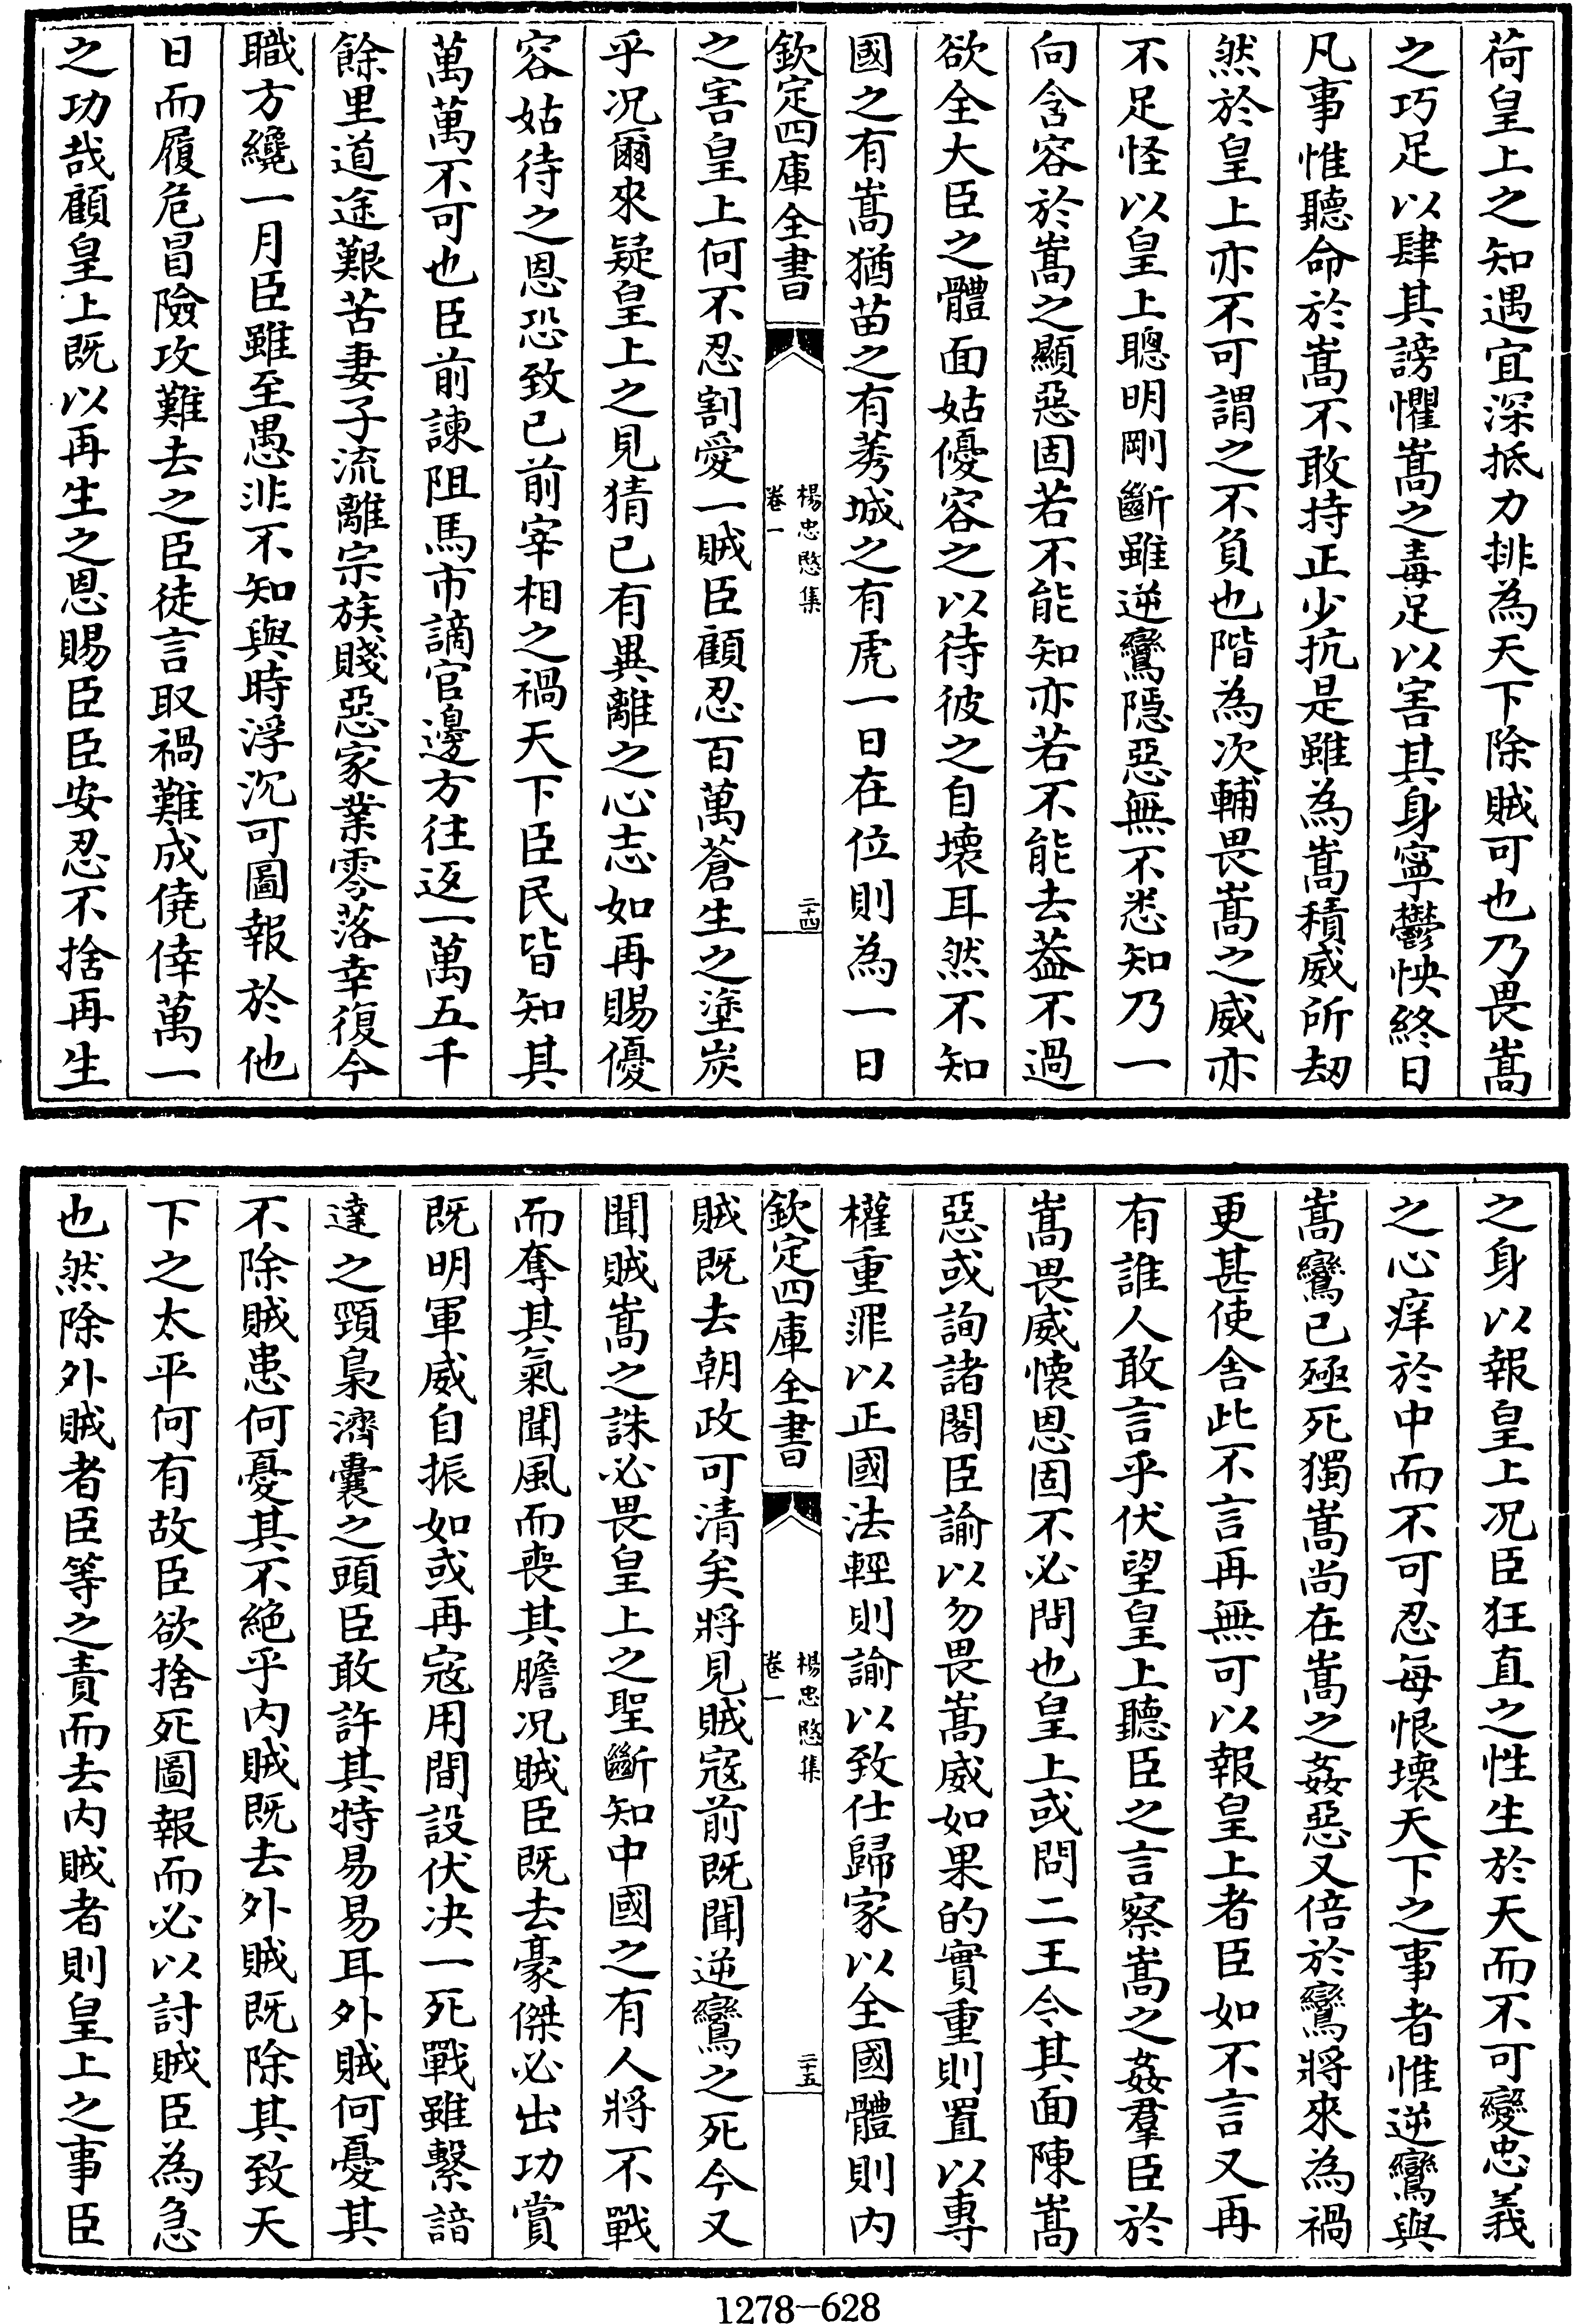 荷皇上之知遇宜深抵力排為天下除賊可也乃畏嵩
之巧足以肆其謗懼嵩之毒足以害其身寧鬱怏終日
凡事惟聽命於嵩不敢持正少抗是雖為嵩積威所刼
然於皇上亦不可謂之不負也階為次輔畏嵩之威亦
不足怪以皇上聰明剛斷雖逆鸞隱惡無不悉知乃一
向含容於嵩之顯惡固若不能知亦若不能去葢不過
欲全大臣之體面姑優容之以待彼之自壞耳然不知
國之有嵩猶苗之有莠城之有虎一日在位則為一日
欽定四庫全書
楊忠愍集
卷一
二十四
之害皇上何不忍割愛一賊臣顧忍百萬蒼生之塗炭
乎况爾來疑皇上之見猜已有異離之心志如再賜優
容姑待之恩恐致已前宰相之禍天下臣民皆知其
萬萬不可也臣前諫阻馬市謫官邊方往返一萬五千
餘里道途艱苦妻子流離宗族賤惡家業零落幸復今
職方纔一月臣雖至愚非不知與時浮沉可圖報於他
日而履危冒險攻難去之臣徒言取禍難成僥倖萬一
之功哉顧皇上既以再生之恩賜臣臣安忍不捨再生
之身以報皇上况臣狂直之性生於天而不可變忠義
之心痒於中而不可忍每恨壞天下之事者惟逆鸞與
嵩鸞已殛死獨嵩尚在嵩之姦惡又倍於鸞將來為禍
更甚使舍此不言再無可以報皇上者臣如不言又再
有誰人敢言乎伏望皇上聽臣之言察嵩之姦羣臣於
嵩畏威懷恩固不必問也皇上或問二王令其面陳嵩
惡或詢諸閣臣諭以勿畏嵩威如果的實重則置以專
權重罪以正國法輕則諭以致仕歸家以全國體則内
欽定四庫全書
楊忠愍集
卷一
二十五
賊既去朝政可清矣將見賊寇前既聞逆鸞之死今又
聞賊嵩之誅必畏皇上之聖斷知中國之有人將不戰
而奪其氣聞風而喪其膽况賊臣既去豪傑必出功賞
既明軍威自振如或再寇用間設伏决一死戰雖繫諳
達之頸梟濟囊之頭臣敢許其特易易耳外賊何憂其
不除賊患何憂其不絶乎内賊既去外賊既除其致天
下之太平何有故臣欲捨死圖報而必以討賊臣為急
也然除外賊者臣等之責而去内賊者則皇上之事臣
1278—628